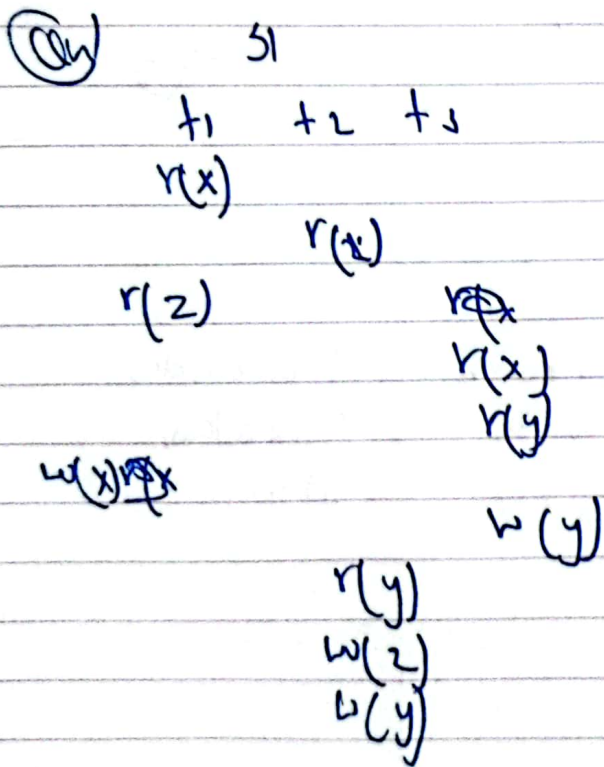 Qu S1
t1 t2 t3
r(x)
r(z)
r(z)
r(x)
r(y)
w(x)
w(y)
r(y)
w(z)
w(y)